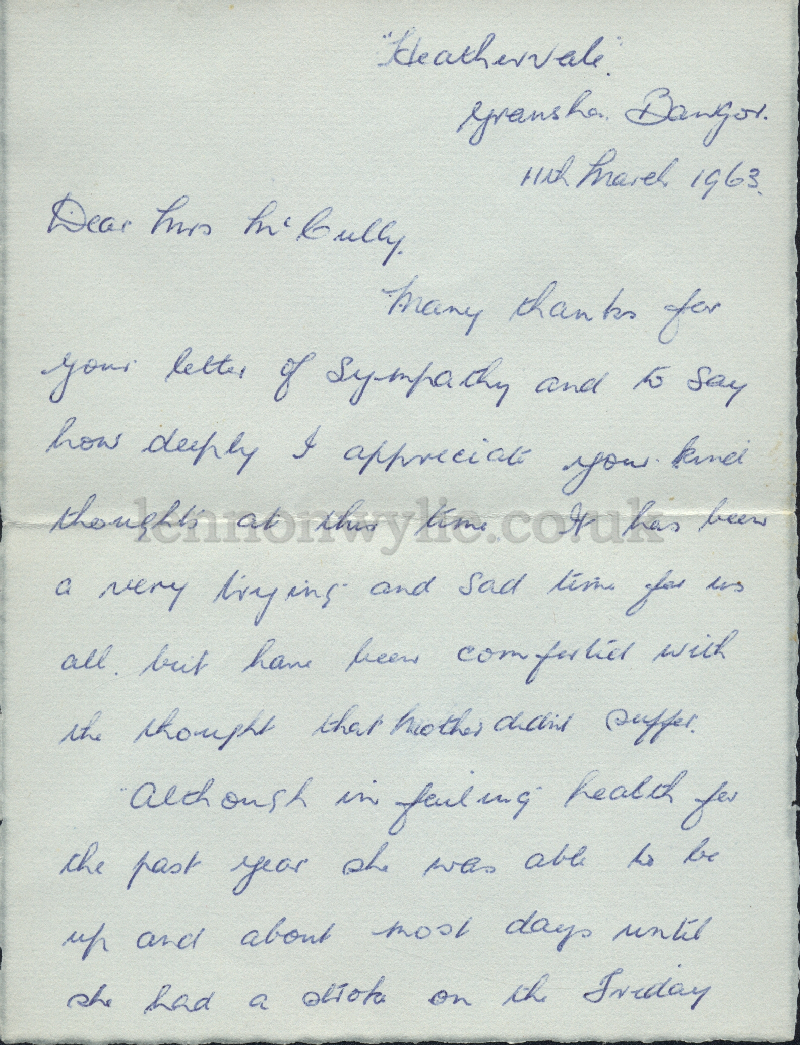 "Heathervale"
Gransha. Bangor.
11th March 1963.
Dear Mrs McCully.
Many thanks for
your letter of sympathy and to say
how deeply I appreciate your kind
thoughts at this time It has been
a very trying and sad time for us
all. but have been comforted with
the thought that Mother didnt suffer.
Although in failing health for
the past year she was able to be
up and about most days until
she had a stroke on the Friday
lennonwylie.co.uk